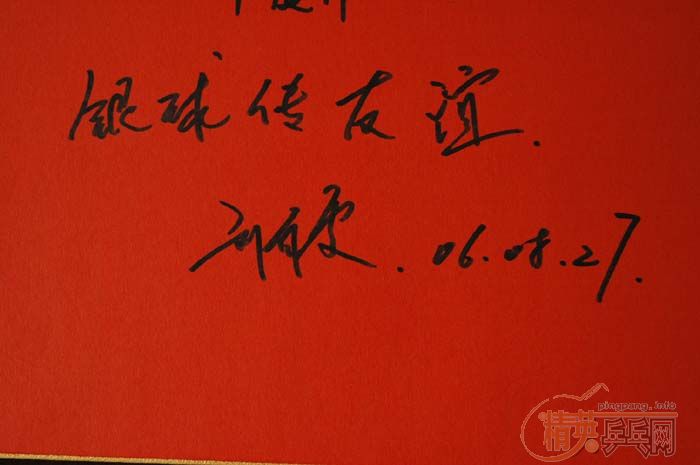 银球传友谊.
.06.08.27.
pingpang.info
精英乒乓网